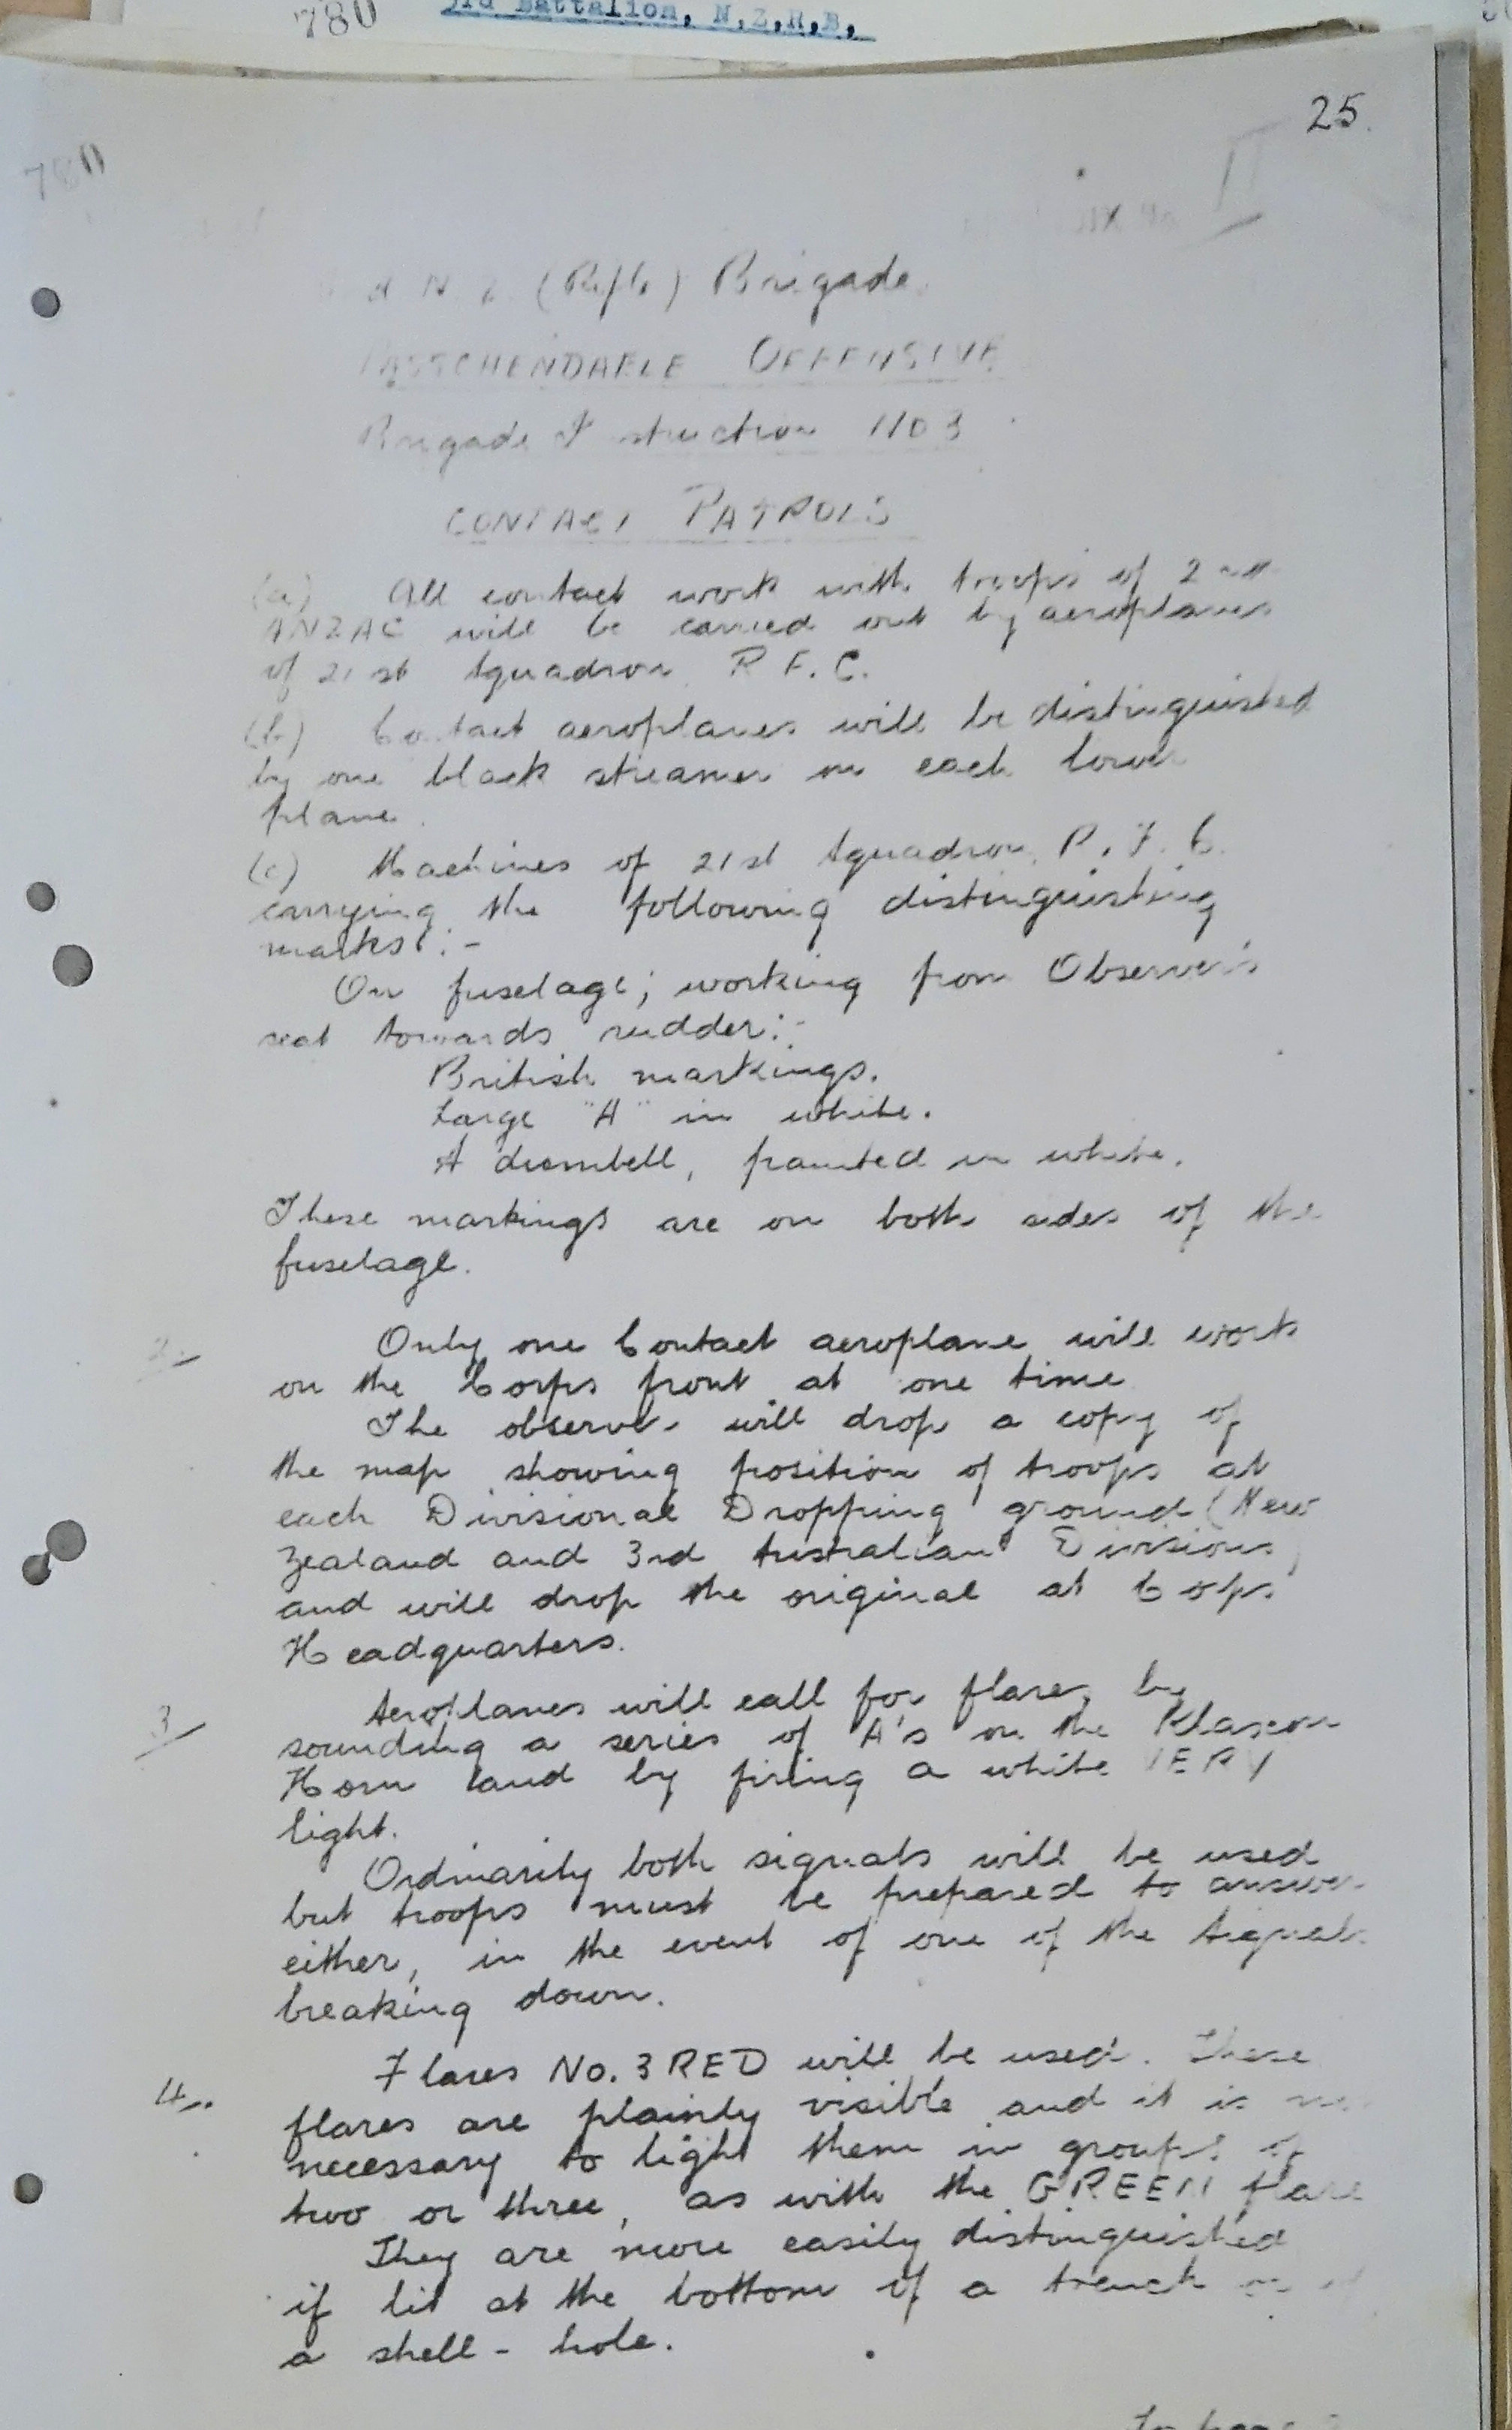 780
3rd Battalion, N.Z.R.B.
25.
780
II
N Z (Rifle) Brigade.
PASSCHENDAELE OFFENSIVE
Brigade Instruction No 3
CONTACT PATROLS
(a) All contact work with troops of 2nd
ANZAC will be carried out by aeroplanes
of 21st Squadron R.F.C.
(b) Contact aeroplanes will be distinguished
by one black streamer on each lower
plane.
(c) Machines of 21st Squadron, R.F.C.
carrying the following distinguishing
marks :-
On fuselage; working from Observer's
seat towards rudder:-
British markings.
Large "A" in white.
A dumbell, painted in white.
These markings are on both sides of the
fuselage.
2. Only one Contact aeroplane will work
on the Corps front at one time
The observer will drop a copy of
the map showing position of troops at
each Divisional Dropping ground (New
Zealand and 3rd Australian Divisions)
and will drop the original at Corps
Headquarters.
3/ Aeroplanes will call for flares by
sounding a series of A's on the Klaxon
Horn and by firing a white VERY
light.
Ordinarily both signals will be used
but troops must be prepared to answer
either, in the event of one of the signals
breaking down.
4. Flares No. 3 RED will be used. These
flares are plainly visible and it is not
necessary to light them in groups of
two or three, as with the GREEN flare
They are more easily distinguished
if lit at the bottom of a trench or of
a shell-hole.